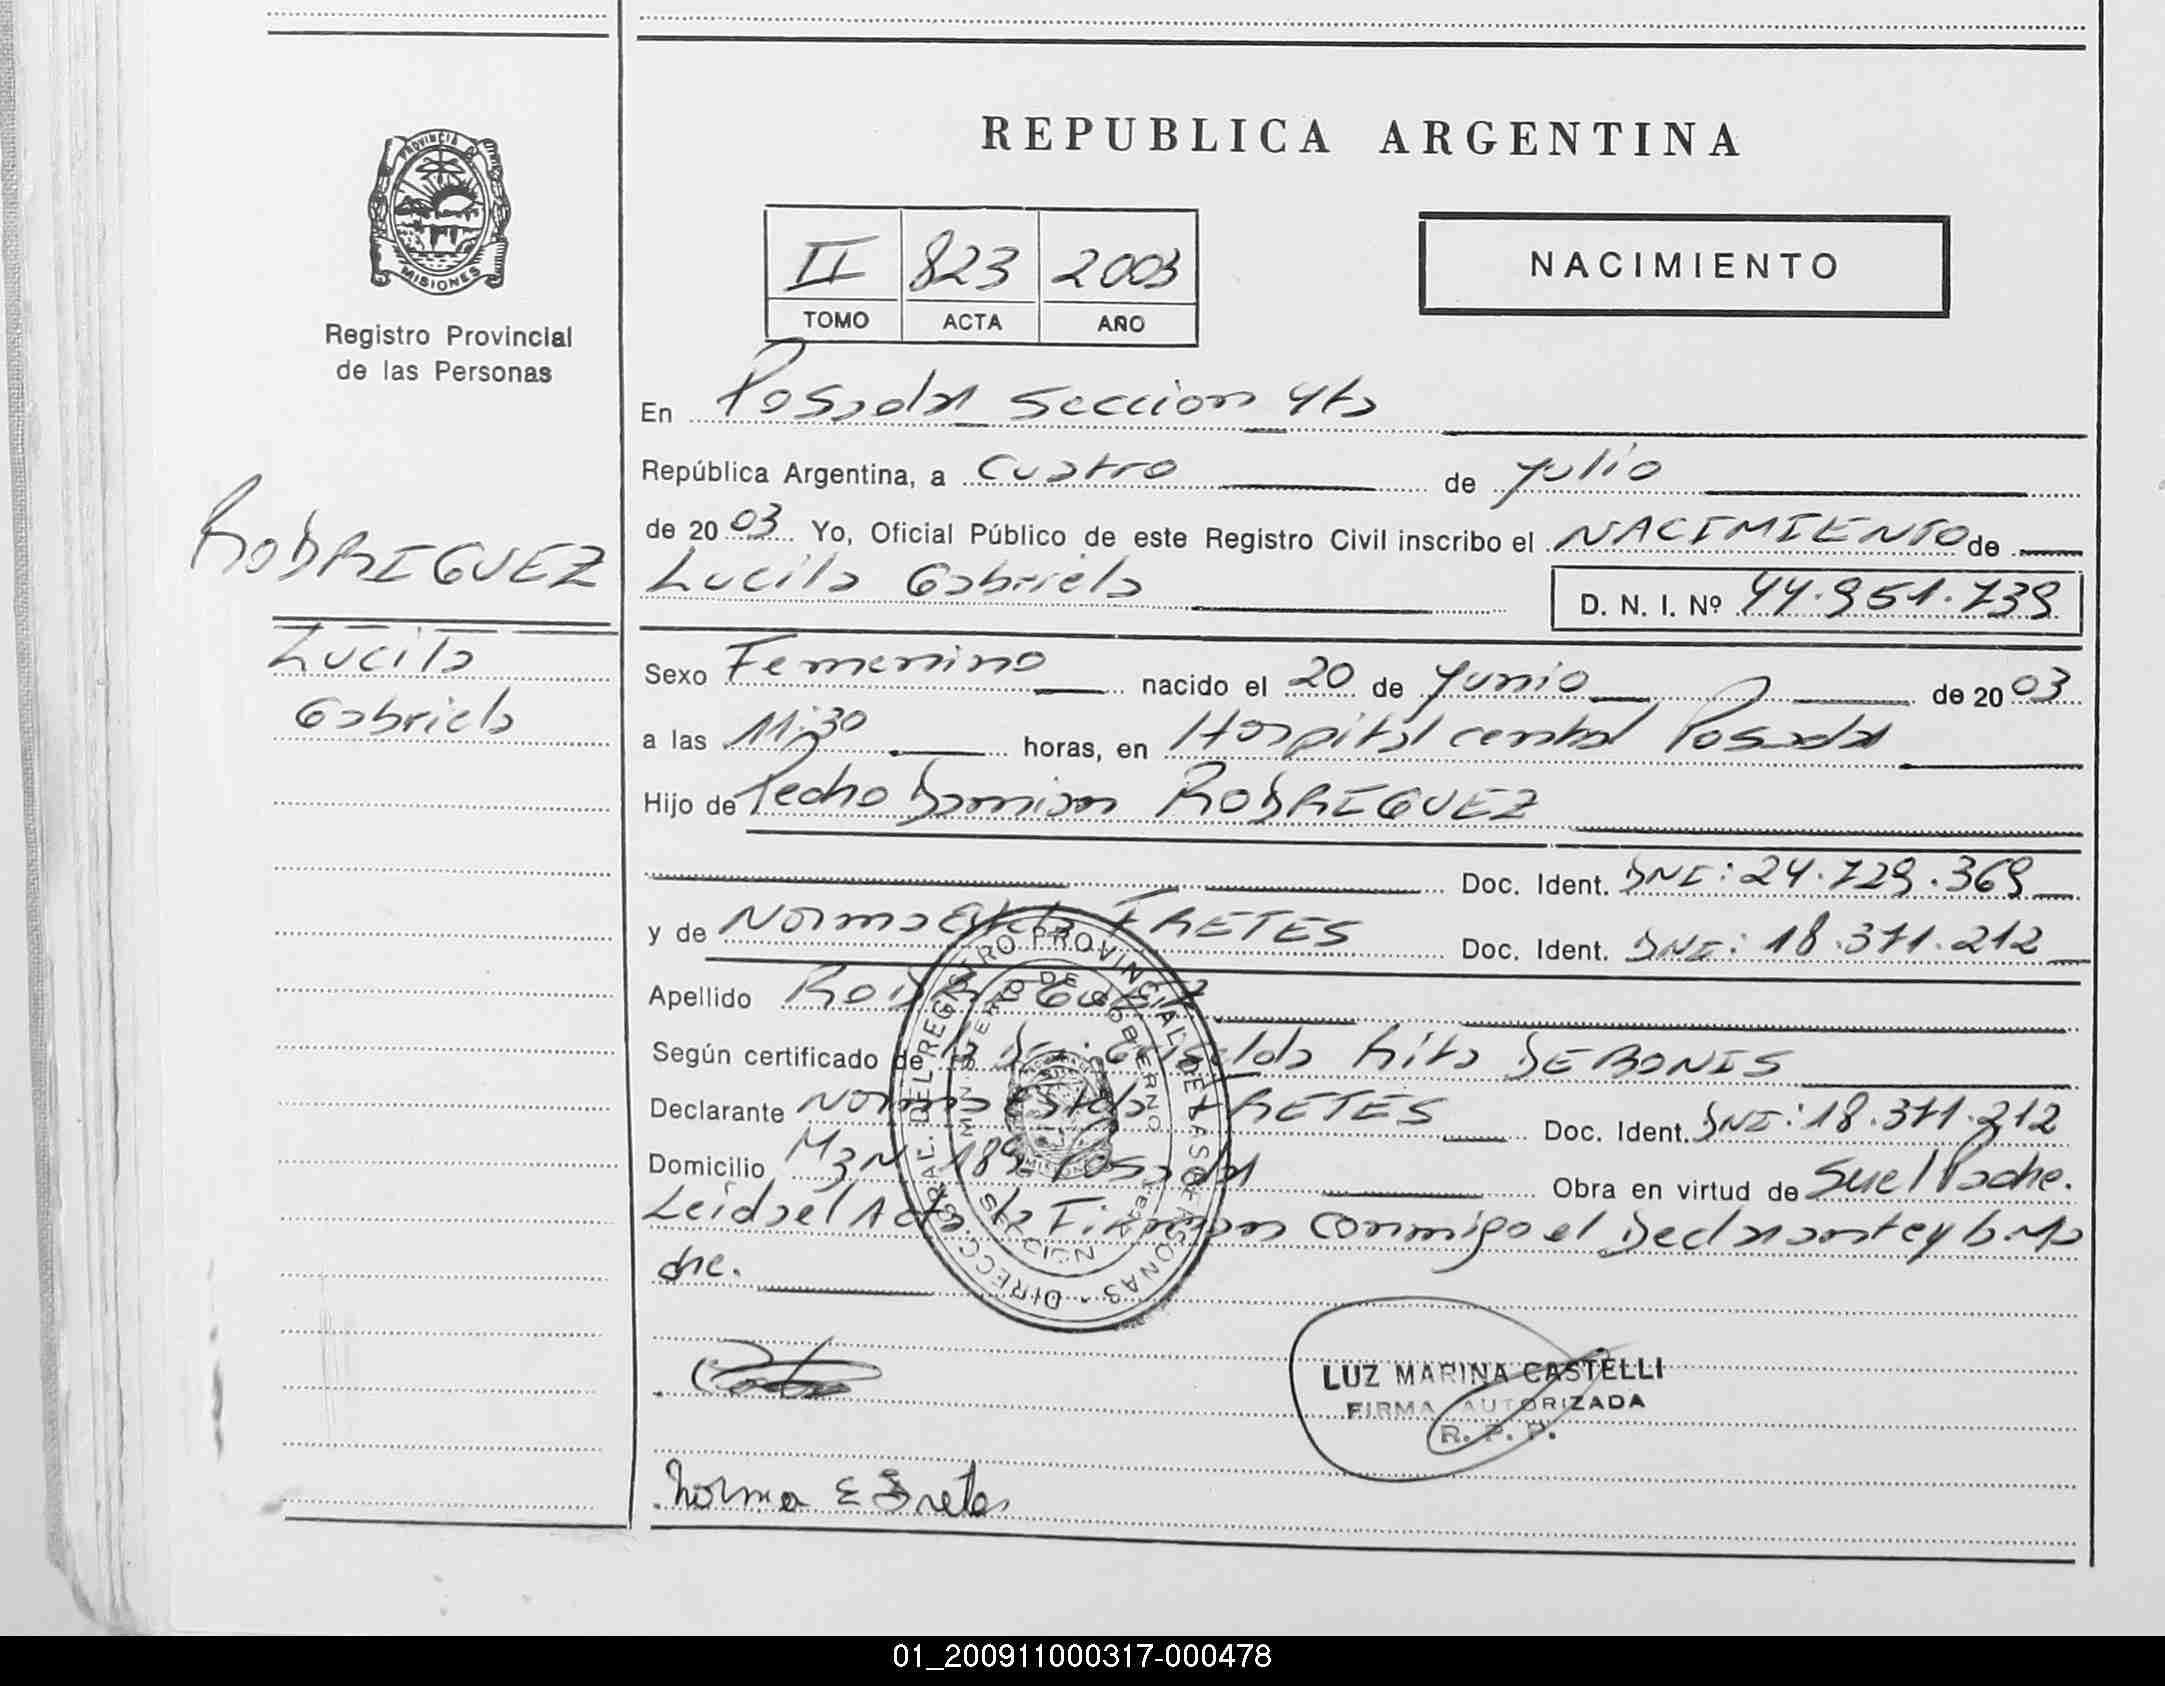 PROVINCIA DE
MISIONES
Registro Provincial
de las Personas
RODRIGUEZ
Lucila
Gabriela
REPUBLICA ARGENTINA
II 823 2003
TOMO ACTA AÑO
NACIMIENTO
En Posadas seccion 4ta
República Argentina, a Cuatro de Julio
de 20 03 Yo, Oficial Público de este Registro Civil inscribo el NACIMIENTO de
Lucila Gabriela D. N. I. Nº 44.951.739
Sexo Femenino nacido el 20 de Junio de 20 03
a las 11:30 horas, en Hospital central Posadas
Hijo de Pedro Damian RODRIGUEZ
Doc. Ident. DNI: 24.729.369
y de Norma Estela FRETES Doc. Ident. DNI: 18.371.212
Apellido RODRIGUEZ
Según certificado de la Dra. Griselda Rita DEBONIS
Declarante Norma Estela FRETES Doc. Ident. DNI: 18.371.212
Domicilio Mz N 189 Posadas Obra en virtud de Ser el Padre.
Leida el Acta la Firman conmigo el Declarante y la Ma
dre.
DIRECC. GRAL. DEL REGISTRO PROVINCIAL DE LAS PERSONAS
MINISTERIO DE GOBIERNO
MISIONES
LUZ MARINA CASTELLI
FIRMA AUTORIZADA
R. P. P.
Norma E Fretes
01_200911000317-000478